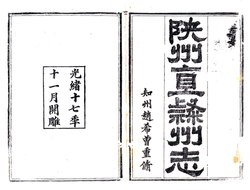 陝州直隸州志
知州趙希曾重脩
光緒十七年
十一月開雕